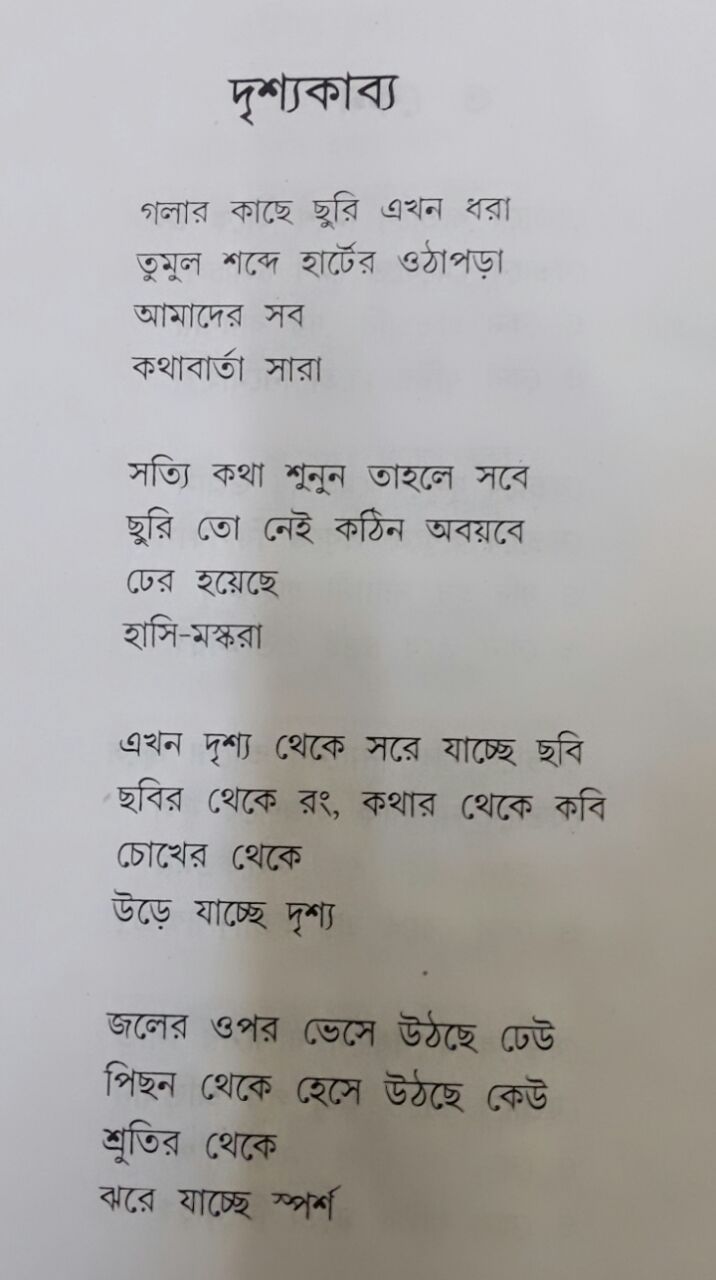 দৃশ্যকাব্য
গলার কাছে ছুরি এখন ধরা
তুমুল শব্দে হার্টের ওঠাপড়া
আমাদের সব
কথাবার্তা সারা
সত্যি কথা শুনুন তাহলে সবে
ছুরি তো নেই কঠিন অবয়বে
ঢের হয়েছে
হাসি-মস্করা
এখন দৃশ্য থেকে সরে যাচ্ছে ছবি
ছবির থেকে রং, কথার থেকে কবি
চোখের থেকে
উড়ে যাচ্ছে দৃশ্য
জলের ওপর ভেসে উঠছে ঢেউ
পিছন থেকে হেসে উঠছে কেউ
শ্রুতির থেকে
ঝরে যাচ্ছে স্পর্শ